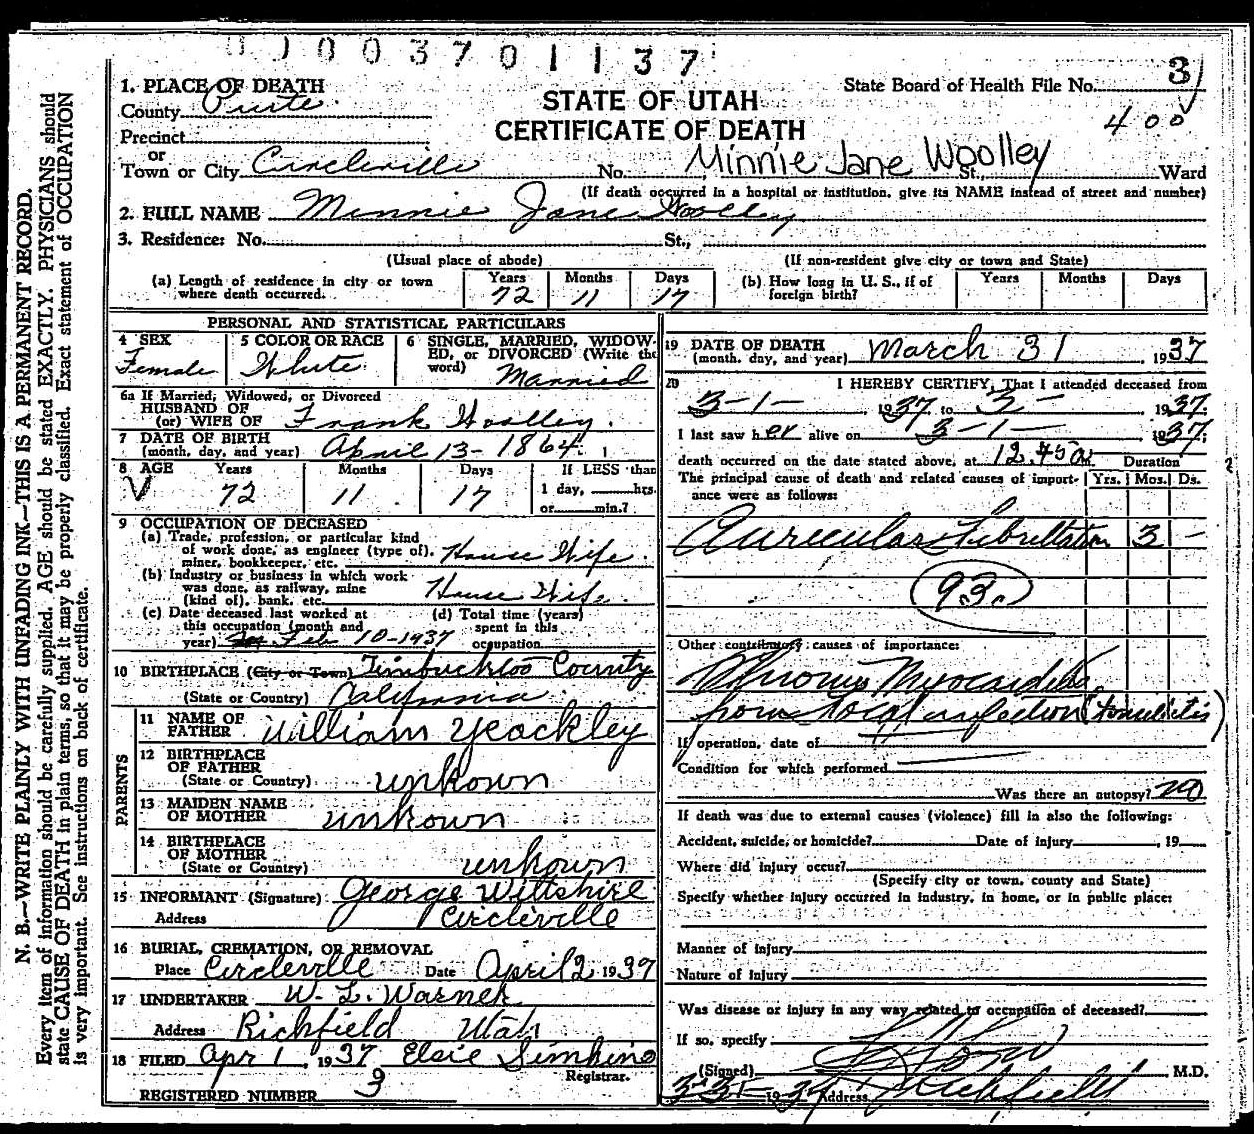 01003701137
1. PLACE OF DEATH
County Piute.
Precinct
or
Town or City Circleville
STATE OF UTAH
CERTIFICATE OF DEATH
State Board of Health File No. 3
400
No. Minnie Jane Woolley St., Ward
(If death occurred in a hospital or institution, give its NAME instead of street and number)
2. FULL NAME Minnie Jane Woolley
3. Residence: No. St.,
(Usual place of abode) (If non-resident give city or town and State)
(a) Length of residence in city or town where death occurred. Years 72 Months 11 Days 17
(b) How long in U. S., if of foreign birth? Years Months Days
PERSONAL AND STATISTICAL PARTICULARS
4 SEX Female
5 COLOR OR RACE White
6 SINGLE, MARRIED, WIDOWED, or DIVORCED (Write the word) Married
6a If Married, Widowed, or Divorced
HUSBAND OF
(or) WIFE OF Frank Woolley.
7 DATE OF BIRTH
(month, day, and year) April 13-1864
8 AGE Years 72 Months 11 Days 17 If LESS than
1 day, hrs.
or min.?
9 OCCUPATION OF DECEASED
(a) Trade, profession, or particular kind
of work done, as engineer (type of),
miner, bookkeeper, etc. House Wife.
(b) Industry or business in which work
was done, as railway, mine
(kind of), bank, etc. House Wife.
(c) Date deceased last worked at
this occupation (month and
year) Feb 10-1937
(d) Total time (years)
spent in this
occupation
10 BIRTHPLACE (City or Town) Timbucktoo County
(State or Country) California
PARENTS
11 NAME OF
FATHER William Yeackley
12 BIRTHPLACE
OF FATHER
(State or Country) unkown
13 MAIDEN NAME
OF MOTHER unkown
14 BIRTHPLACE
OF MOTHER
(State or Country) unkown
15 INFORMANT (Signature) George Wiltshire
Address Circleville
16 BURIAL, CREMATION, OR REMOVAL
Place Circleville Date April 2 1937
17 UNDERTAKER W. L. Warner
Address Richfield Utah
18 FILED Apr 1, 1937 Elsie Simkins
Registrar.
REGISTERED NUMBER 3
19 DATE OF DEATH
(month, day, and year) March 31, 1937
20 I HEREBY CERTIFY, That I attended deceased from
3-1- 1937, to 3- 1937.
I last saw her alive on 3-1- 1937;
death occurred on the date stated above, at 12.45 a m. Duration
The principal cause of death and related causes of importance were as follows: Yrs. Mos. Ds.
Auricular Fibrillation 3 -
93.
Other contributory causes of importance:
Chronic Myocarditis
from focal infection (tonsilitis)
If operation, date of
Condition for which performed
Was there an autopsy? no
If death was due to external causes (violence) fill in also the following:
Accident, suicide, or homicide? Date of injury , 19
Where did injury occur?
(Specify city or town, county and State)
Specify whether injury occurred in industry, in home, or in public place:
Manner of Injury
Nature of Injury
Was disease or injury in any way related to occupation of deceased?
If so, specify
(Signed) M.D.
3-31-1937 Address Richfield
N. B.—WRITE PLAINLY WITH UNFADING INK—THIS IS A PERMANENT RECORD.
Every item of information should be carefully supplied. AGE should be stated EXACTLY. PHYSICIANS should
state CAUSE OF DEATH in plain terms, so that it may be properly classified. Exact statement of OCCUPATION
is very important. See instructions on back of certificate.